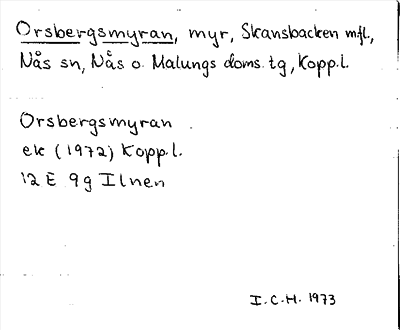 Orsbergsmyran, myr, Skansbacken mfl.,
Nås sn, Nås o. Malungs doms. tg, Kopp.l.
Orsbergsmyran
ek (1972) Kopp.l.
12 E 9g Ilnen
I.C.H. 1973